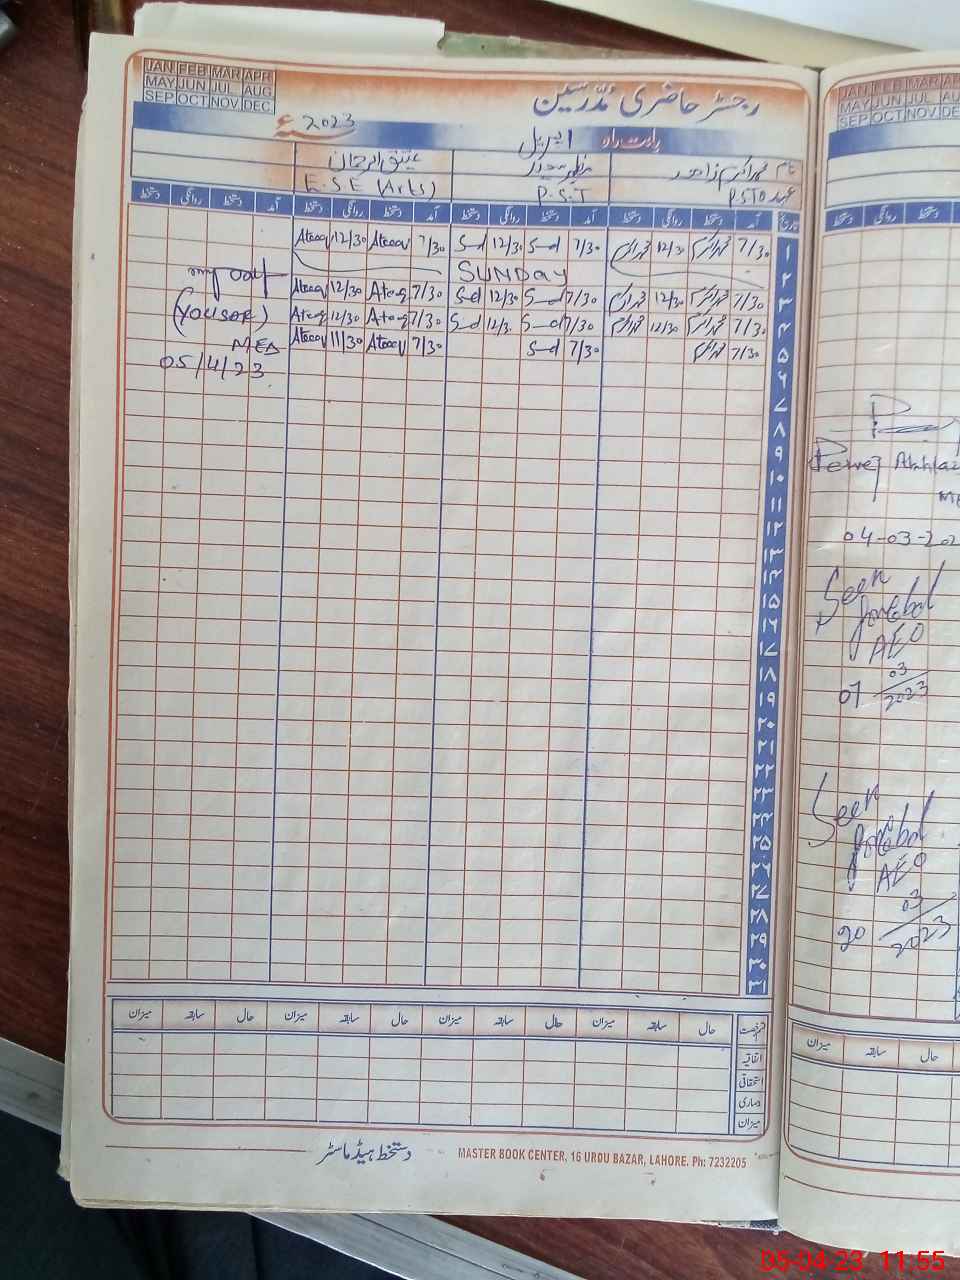 JAN FEB MAR APR
MAY JUN JUL AUG
SEP OCT NOV DEC
رجسٹر حاضری مدرسین
بابت ماہ اپریل 2023
نام
عتیق الرحمان
عہدہ P.S.T
P.S.T
E.S.E (Arts)
تاریخ آمد دستخط روانگی دستخط آمد دستخط روانگی دستخط آمد دستخط روانگی دستخط آمد دستخط روانگی دستخط
۱ 7/30 12/30 7/30 Sd 12/30 Sd 7/30 Ateeq 12/30 Ateeq
۲ SUNDAY
۳ 7/30 12/30 7/30 Sd 12/30 Sd 7/30 Ateeq 12/30 Ateeq
۴ 7/30 12/30 7/30 Sd 12/3 Sd 7/30 Ateeq 12/30 Ateeq
۵ 7/30 7/30 Sd 7/30 Ateeq 11/30 Ateeq
(YOUSAF)
MEA
05/4/23
۶
۷
۸
۹
۱۰
۱۱
۱۲
۱۳
۱۴
۱۵
۱۶
۱۷
۱۸
۱۹
۲۰
۲۱
۲۲
۲۳
۲۴
۲۵
۲۶
۲۷
۲۸
۲۹
۳۰
۳۱
قسم رخصت حال سابقہ میزان حال سابقہ میزان حال سابقہ میزان حال سابقہ میزان
اتفاقیہ
استحقاقی
بیماری
میزان
دستخط ہیڈ ماسٹر
MASTER BOOK CENTER, 16 URDU BAZAR, LAHORE. Ph: 7232205
JAN FEB MAR
MAY JUN JUL
SEP OCT NOV
دستخط روانگی دستخط
Pervej
04-03-202
Seen
AEO
07 03/2023
Seen
AEO
20 03/2023
میزان سابقہ حال
05-04-23 11:55